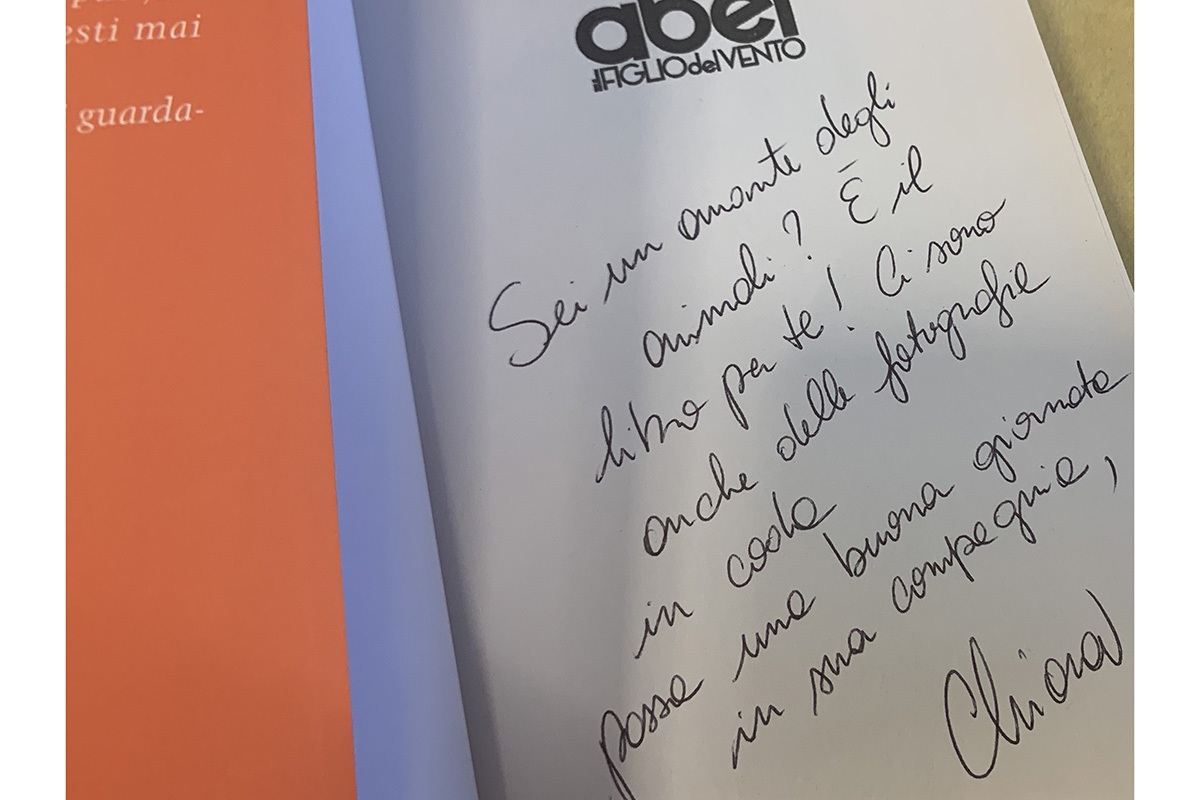 esti mai
guarda-
abel
ilFIGLIOdelVENTO
Sei un amante degli
animali? È il
libro per te! Ci sono
anche delle fotografie
in coda
passa una buona giornata
in sua compagnia,
Chiara